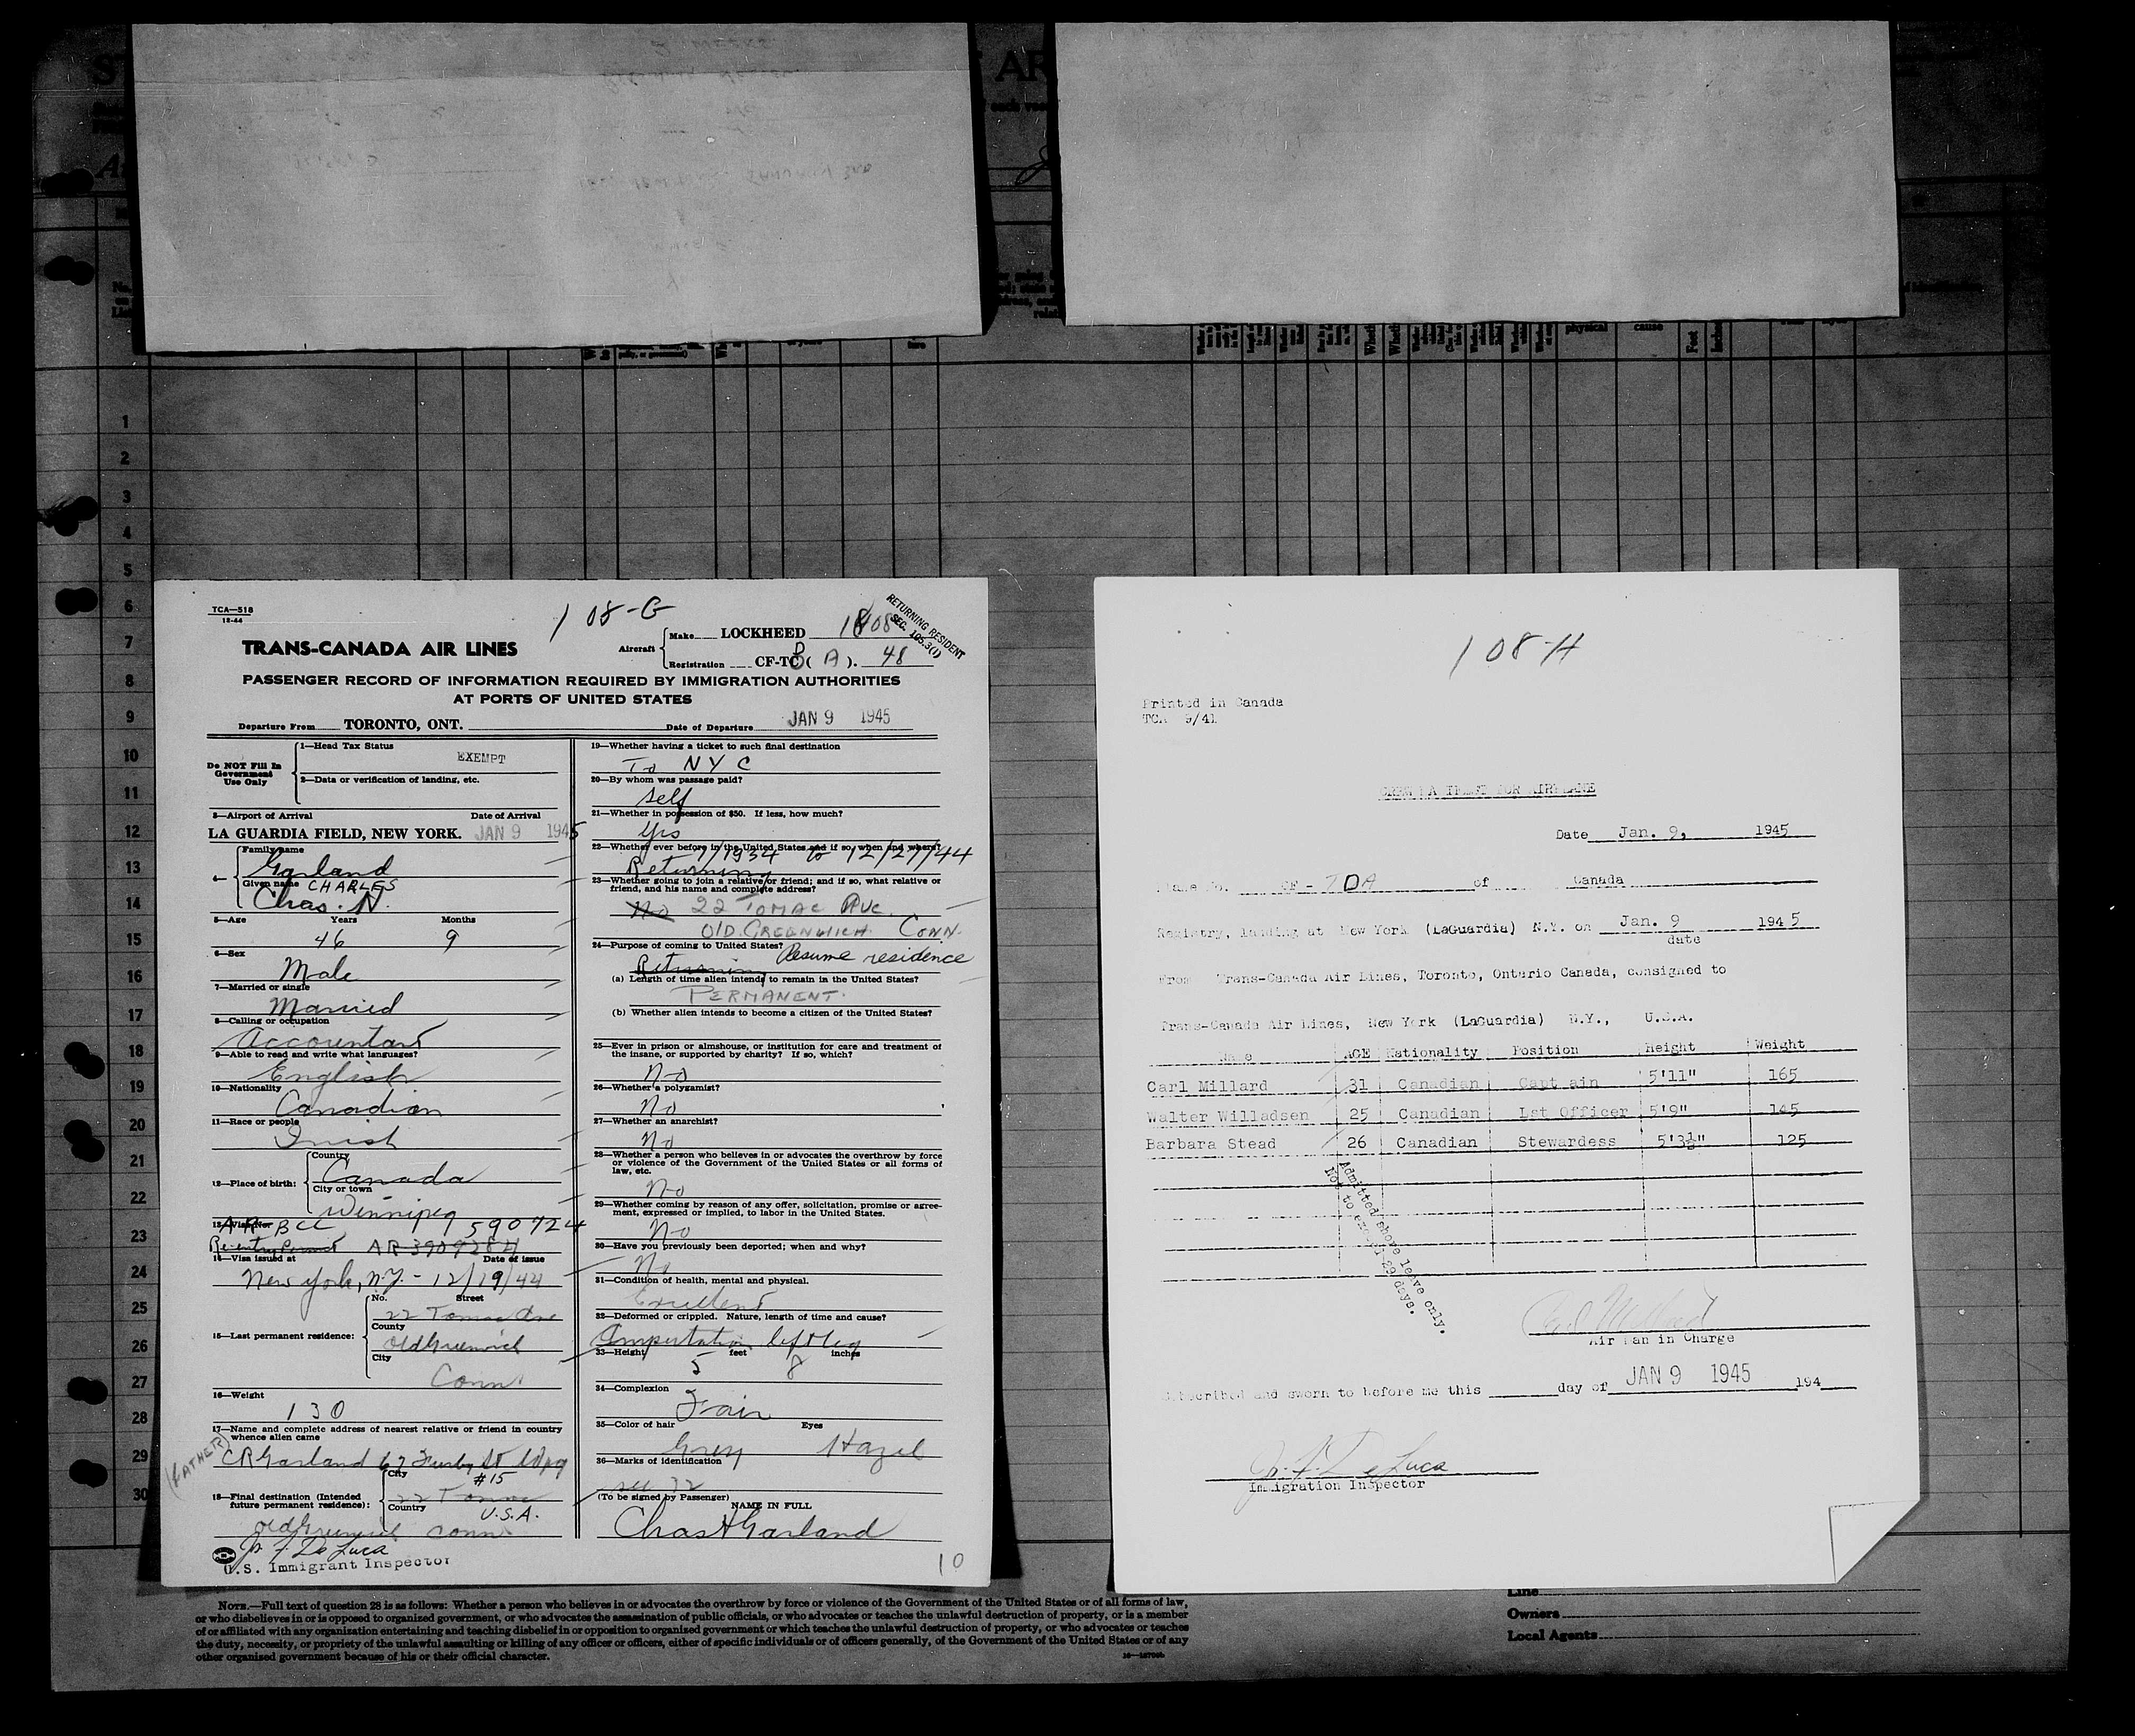 TCA—518
12-44
108-G
RETURNING RESIDENT
SEC. 105.3(1)
TRANS-CANADA AIR LINES
Aircraft
Make LOCKHEED 1808
Registration CF-TC ( A ). 48
PASSENGER RECORD OF INFORMATION REQUIRED BY IMMIGRATION AUTHORITIES
AT PORTS OF UNITED STATES
Departure From TORONTO, ONT. Date of Departure JAN 9 1945
Do NOT Fill In
Government
Use Only
1—Head Tax Status
EXEMPT
2—Data or verification of landing, etc.
3—Airport of Arrival Date of Arrival
LA GUARDIA FIELD, NEW YORK. JAN 9 1945
4—
Family name
Garland
Given name CHARLES
Chas. N.
5—Age Years Months
46 9
6—Sex
Male
7—Married or single
Married
8—Calling or occupation
Accountant
9—Able to read and write what languages?
English
10—Nationality
Canadian
11—Race or people
Irish
12—Place of birth:
Country
Canada
City or town
Winnipeg
13—Visa No. BCC 590724
Re-entry Permit AR 3909284
14—Visa issued at Date of issue
New York, N.Y. - 12/19/44
15—Last permanent residence:
No. Street
22 Tomac Ave
County
Old Greenwich
City
Conn.
16—Weight
130
17—Name and complete address of nearest relative or friend in country
whence alien came
(FATHER)
C R Garland 67 Furby St Wpg
#15
18—Final destination (Intended
future permanent residence):
City
22 Tomac
Country
U.S.A.
Old Greenwich Conn
U.S. Immigrant Inspector
19—Whether having a ticket to such final destination
To NYC
20—By whom was passage paid?
self
21—Whether in possession of $50. If less, how much?
Yes
22—Whether ever before in the United States and if so, when and where?
1/1934 to 12/27/44
Returning
23—Whether going to join a relative or friend; and if so, what relative or
friend, and his name and complete address?
No 22 TOMAC AVE.
OLD GREENWICH CONN.
24—Purpose of coming to United States? Resume residence
Returning
(a) Length of time alien intends to remain in the United States?
PERMANENT.
(b) Whether alien intends to become a citizen of the United States?
25—Ever in prison or almshouse, or institution for care and treatment of
the insane, or supported by charity? If so, which?
No
26—Whether a polygamist?
No
27—Whether an anarchist?
No
28—Whether a person who believes in or advocates the overthrow by force
or violence of the Government of the United States or all forms of
law, etc.
No
29—Whether coming by reason of any offer, solicitation, promise or agree-
ment, expressed or implied, to labor in the United States.
No
30—Have you previously been deported; when and why?
No
31—Condition of health, mental and physical.
Excellent
32—Deformed or crippled. Nature, length of time and cause?
Amputation left leg
33—Height feet inches
5 8
34—Complexion
Fair
35—Color of hair Eyes
Grey Hazel
36—Marks of identification
see 32
(To be signed by Passenger) NAME IN FULL
Chas N Garland
10
108-H
Printed in Canada
TCA 9/41
CREW MANIFEST FOR AIRPLANE
Date Jan. 9, 1945
Plane No. CF - TDA of Canada
Registry, landing at New York (LaGuardia) N.Y. on Jan. 9 1945
date
From Trans-Canada Air Lines, Toronto, Ontario Canada, consigned to
Trans-Canada Air Lines, New York (LaGuardia) N.Y., U.S.A.
Name AGE Nationality Position Height Weight
Carl Millard 31 Canadian Captain 5'11" 165
Walter Willadsen 25 Canadian 1st Officer 5'9" 145
Barbara Stead 26 Canadian Stewardess 5'3½" 125
Admitted shore leave only.
Not to exceed 29 days.
Carl Millard
Air Man in Charge
Subscribed and sworn to before me this day of JAN 9 1945 194
Jr. F. De Luca
Immigration Inspector
physical cause Feet Inches
1
2
3
4
5
6
7
8
9
10
11
12
13
14
15
16
17
18
19
20
21
22
23
24
25
26
27
28
29
30
NOTE.—Full text of question 28 is as follows: Whether a person who believes in or advocates the overthrow by force or violence of the Government of the United States or of all forms of law,
or who disbelieves in or is opposed to organized government, or who advocates the assassination of public officials, or who advocates or teaches the unlawful destruction of property, or is a member
of or affiliated with any organization entertaining and teaching disbelief in or opposition to organized government or which teaches the unlawful destruction of property, or who advocates or teaches
the duty, necessity, or propriety of the unlawful assaulting or killing of any officer or officers, either of specific individuals or of officers generally, of the Government of the United States or of any
other organised government because of his or their official character.
Line
Owners
Local Agents